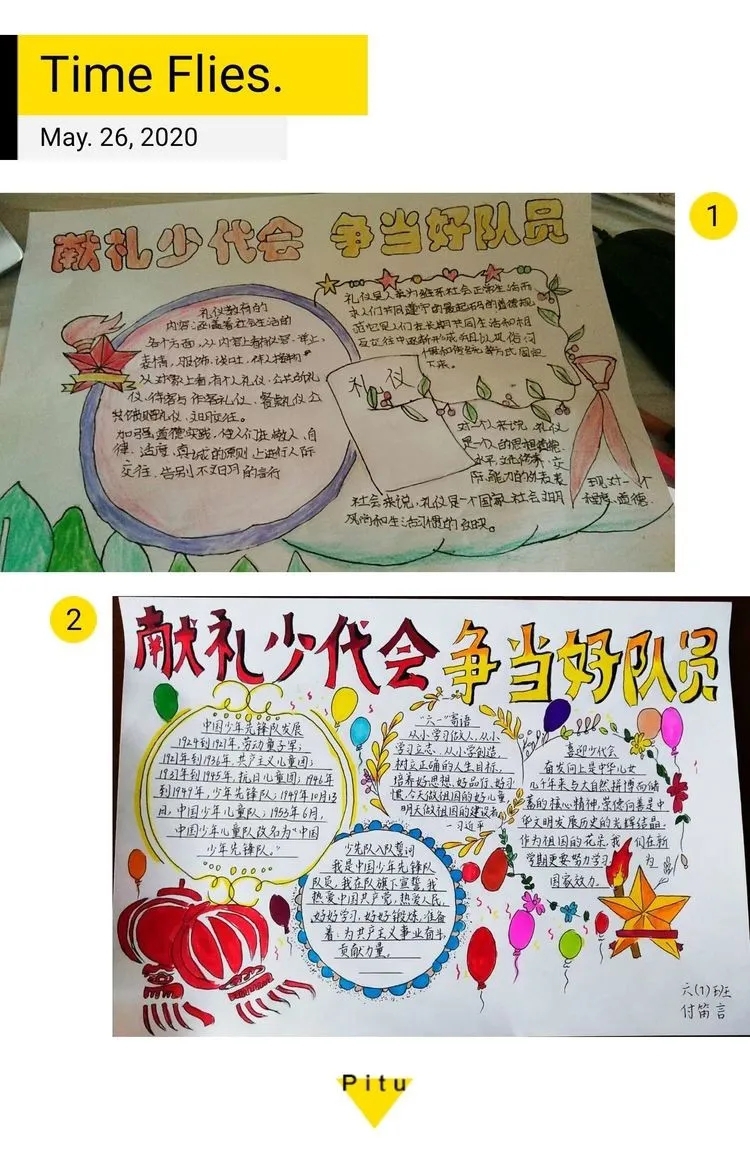 Time Flies.
May. 26, 2020
1
献礼少代会 争当好队员
礼仪教育的
内容涵盖着社会生活的
各个方面,从内容上看有仪容、举止、
表情、服饰、谈吐、待人接物
从对象上看,有个人礼仪、公共场所礼
仪、待客与作客礼仪、餐桌礼仪、公
共馈赠礼仪、文明交往。
加强道德实践,使人们在敬人、自
律、适度、真诚的原则上进行人际
交往,告别不文明的言行
礼仪是人类为维系社会正常生活而
求人们共同遵守的最起码的道德规
范它是人们在长期共同生活和相
互交往中逐渐形成并且以风俗习
惯和传统等方式固定
下来。
礼 仪
对一个人来说,礼仪
是一个人的思想道德
水平、文化修养、交
际能力的外在表
现对一个
社会来说,礼仪是一个国家社会文明
程度、道德
风尚和生活习惯的反映。
2
献礼少代会 争当好队员
中国少年先锋队发展
1924到1927年,劳动童子军;
1927年到1936年,共产主义儿童团;
1937年到1945年,抗日儿童团;1946年
到1949年,少年先锋队;1949年10月13
日,中国少年儿童队;1953年6月,
中国少年儿童队改名为“中国
少年先锋队。”
“六一”寄语
从小学习做人,从小
学习立志,从小学创造,
树立正确的人生目标,
培养好思想、好品行、好习
惯,今天做祖国的好儿童
明天做祖国的建设者。
-习近平
喜迎少代会
奋发向上是中华儿女
几千年来与大自然拼搏而储
蓄的核心精神,崇德向善是中
华文明发展历史的光辉结晶。
作为祖国的花朵,我们在新
学期更要努力学习,为
国家效力。
少先队入队誓词
我是中国少年先锋队
队员,我在队旗下宣誓,我
热爱中国共产党,热爱人民,
好好学习,好好锻炼,准备
着:为共产主义事业奋斗,
贡献力量。
六(1)班
付笛言
Pitu